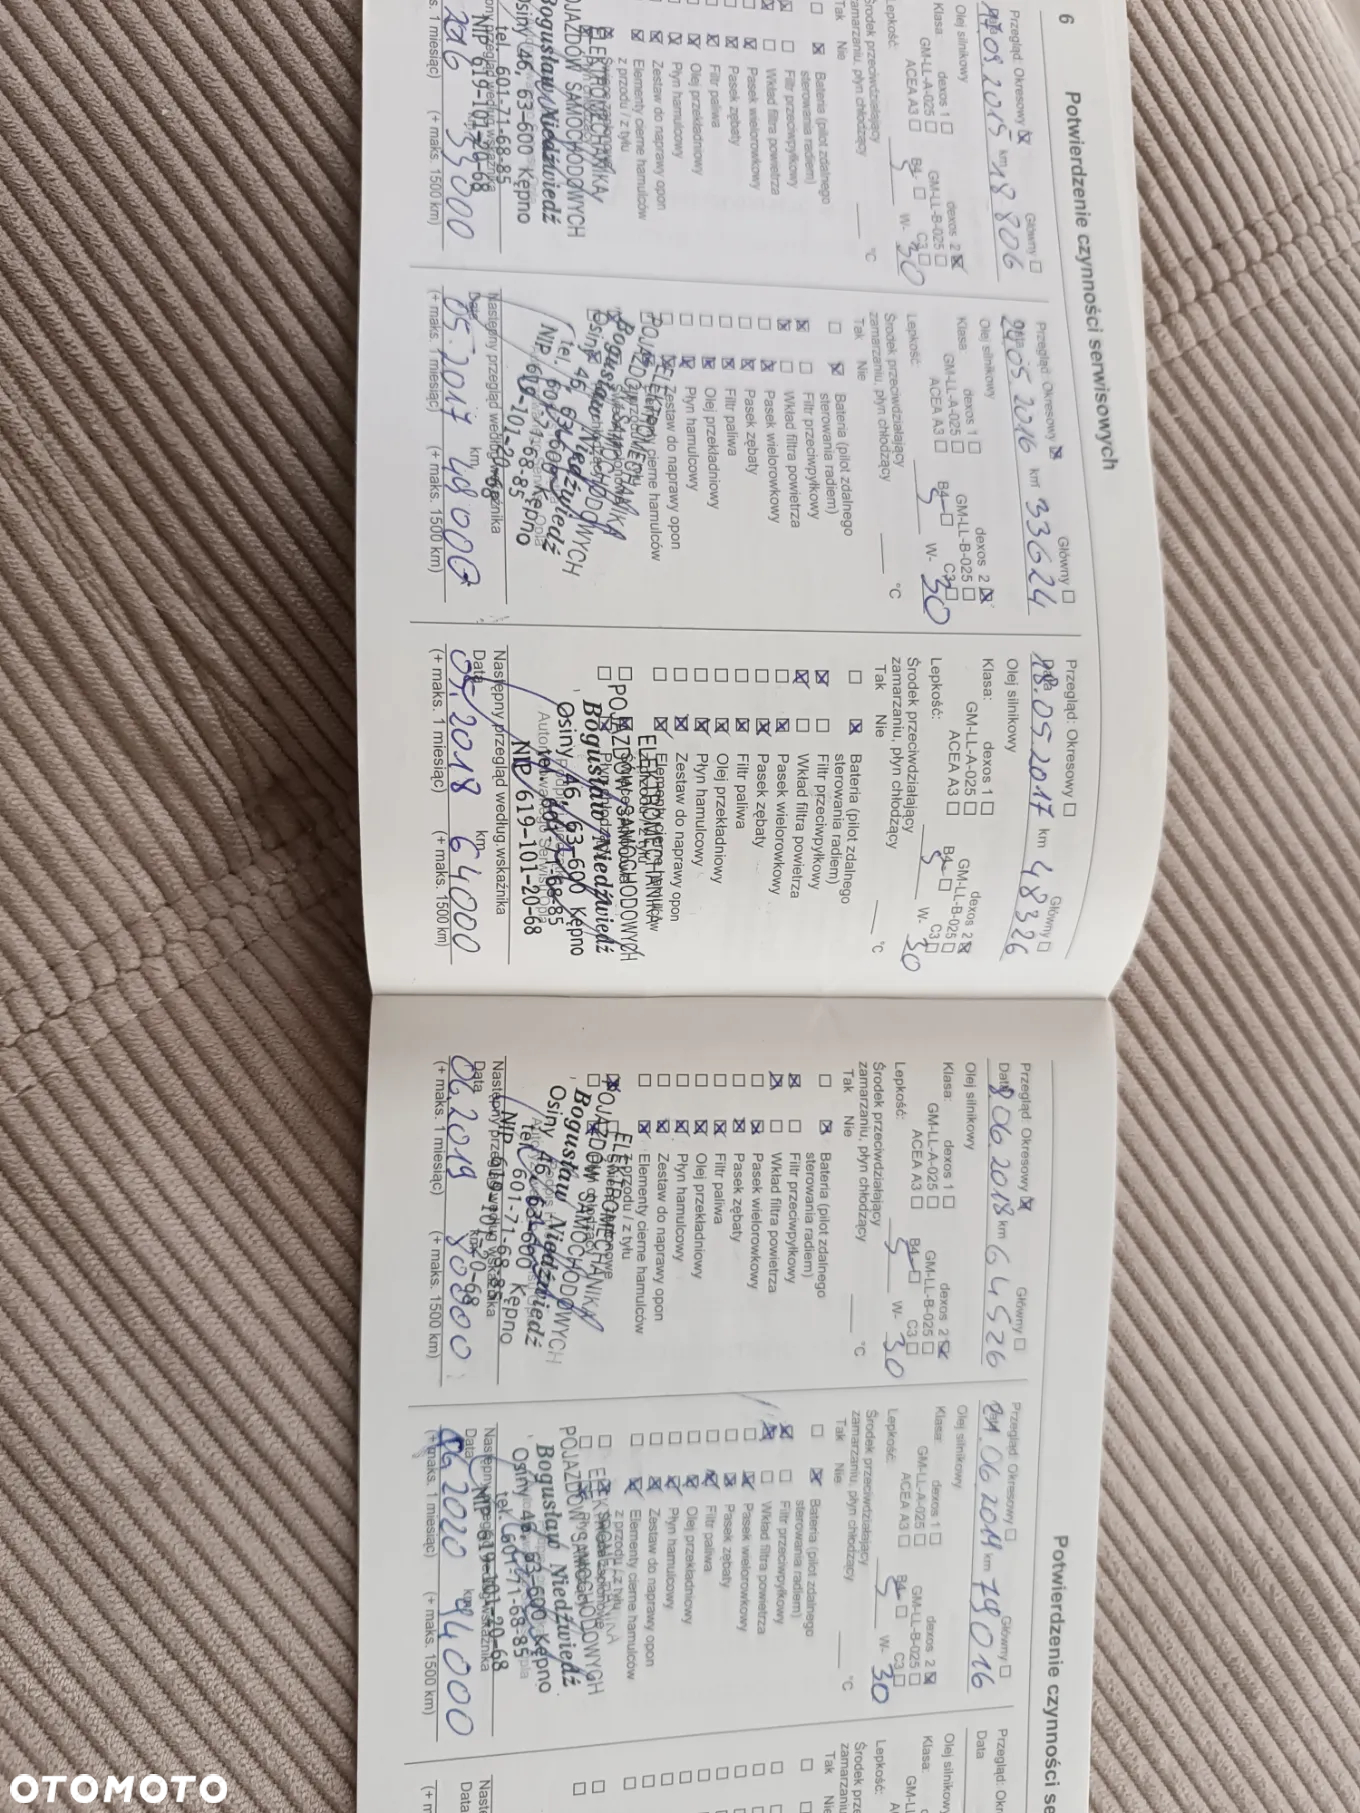 6
Potwierdzenie czynności serwisowych
Przegląd: Okresowy Główny
17.09.2015 km 18806
Olej silnikowy
Klasa: dexos 1 dexos 2
GM-LL-A-025 GM-LL-B-025
ACEA A3 B4 C3
Lepkość: 5 W- 30
Środek przeciwdziałający
zamarzaniu, płyn chłodzący °C
Tak Nie
Bateria (pilot zdalnego
sterowania radiem)
Filtr przeciwpyłkowy
Wkład filtra powietrza
Pasek wielorowkowy
Pasek zębaty
Olej przekładniowy
Filtr paliwa
Płyn hamulcowy
Zestaw do naprawy opon
Elementy cierne hamulców
z przodu / z tyłu
ELEKTROMECHANIKA
POJAZDÓW SAMOCHODOWYCH
Bogusław Niedźwiedź
Osiny 46, 63-600 Kępno
tel. 601-71-68-85
NIP 619-101-20-68
2016 33000
(+ maks. 1500 km)
Przegląd: Okresowy Główny
Data 20.05.2016 km 33624
Olej silnikowy
Klasa: dexos 1 dexos 2
GM-LL-A-025 GM-LL-B-025
ACEA A3 B4 C3
Lepkość: 5 W- 30
Środek przeciwdziałający
zamarzaniu, płyn chłodzący °C
Tak Nie
Bateria (pilot zdalnego
sterowania radiem)
Filtr przeciwpyłkowy
Wkład filtra powietrza
Pasek wielorowkowy
Pasek zębaty
Filtr paliwa
Olej przekładniowy
Płyn hamulcowy
Zestaw do naprawy opon
Elementy cierne hamulców
z przodu / z tyłu
ELEKTROMECHANIKA
POJAZDÓW SAMOCHODOWYCH
Bogusław Niedźwiedź
Osiny 46, 63-600 Kępno
tel. 601-71-68-85
NIP 619-101-20-68
Następny przegląd według wskaźnika
Data 05.2017 km 48000
(+ maks. 1 miesiąc) (+ maks. 1500 km)
Przegląd: Okresowy Główny
Data 18.05.2017 km 48326
Olej silnikowy
Klasa: dexos 1 dexos 2
GM-LL-A-025 GM-LL-B-025
ACEA A3 B4 C3
Lepkość: 5 W- 30
Środek przeciwdziałający
zamarzaniu, płyn chłodzący °C
Tak Nie
Bateria (pilot zdalnego
sterowania radiem)
Filtr przeciwpyłkowy
Wkład filtra powietrza
Pasek wielorowkowy
Pasek zębaty
Filtr paliwa
Olej przekładniowy
Płyn hamulcowy
Zestaw do naprawy opon
Elementy cierne hamulców
z przodu / z tyłu
ELEKTROMECHANIKA
POJAZDÓW SAMOCHODOWYCH
Bogusław Niedźwiedź
Osiny 46, 63-600 Kępno
tel. 601-71-68-85
NIP 619-101-20-68
Następny przegląd według wskaźnika
Data 05.2018 km 64000
(+ maks. 1 miesiąc) (+ maks. 1500 km)
Potwierdzenie czynności se
Przegląd: Okresowy Główny
Data 8.06.2018 km 64526
Olej silnikowy
Klasa: dexos 1 dexos 2
GM-LL-A-025 GM-LL-B-025
ACEA A3 B4 C3
Lepkość: 5 W- 30
Środek przeciwdziałający
zamarzaniu, płyn chłodzący °C
Tak Nie
Bateria (pilot zdalnego
sterowania radiem)
Filtr przeciwpyłkowy
Wkład filtra powietrza
Pasek wielorowkowy
Pasek zębaty
Filtr paliwa
Olej przekładniowy
Płyn hamulcowy
Zestaw do naprawy opon
Elementy cierne hamulców
z przodu / z tyłu
ELEKTROMECHANIKA
POJAZDÓW SAMOCHODOWYCH
Bogusław Niedźwiedź
Osiny 46, 63-600 Kępno
tel. 601-71-68-85
NIP 619-101-20-68
Następny przegląd według wskaźnika
Data 06.2019 80000
(+ maks. 1 miesiąc) (+ maks. 1500 km)
Przegląd: Okresowy Główny
21.06.2019 km 79016
Olej silnikowy
Klasa: dexos 1 dexos 2
GM-LL-A-025 GM-LL-B-025
ACEA A3 B4 C3
Lepkość: 5 W- 30
Środek przeciwdziałający
zamarzaniu, płyn chłodzący °C
Tak Nie
Bateria (pilot zdalnego
sterowania radiem)
Filtr przeciwpyłkowy
Wkład filtra powietrza
Pasek wielorowkowy
Pasek zębaty
Filtr paliwa
Olej przekładniowy
Płyn hamulcowy
Zestaw do naprawy opon
Elementy cierne hamulców
z przodu / z tyłu
POJAZDÓW SAMOCHODOWYCH
Bogusław Niedźwiedź
Osiny 46, 63-600 Kępno
tel. 601-71-68-85
NIP 619-101-20-68
Data 06.2020 km 94000
(+ maks. 1 miesiąc) (+ maks. 1500 km)
Przegląd: Okr
Data
Olej silnikowy
Klasa:
GM-LL
Lepkość:
Środek prze
zamarzaniu
Tak Nie
Nastę
Data
OTOMOTO